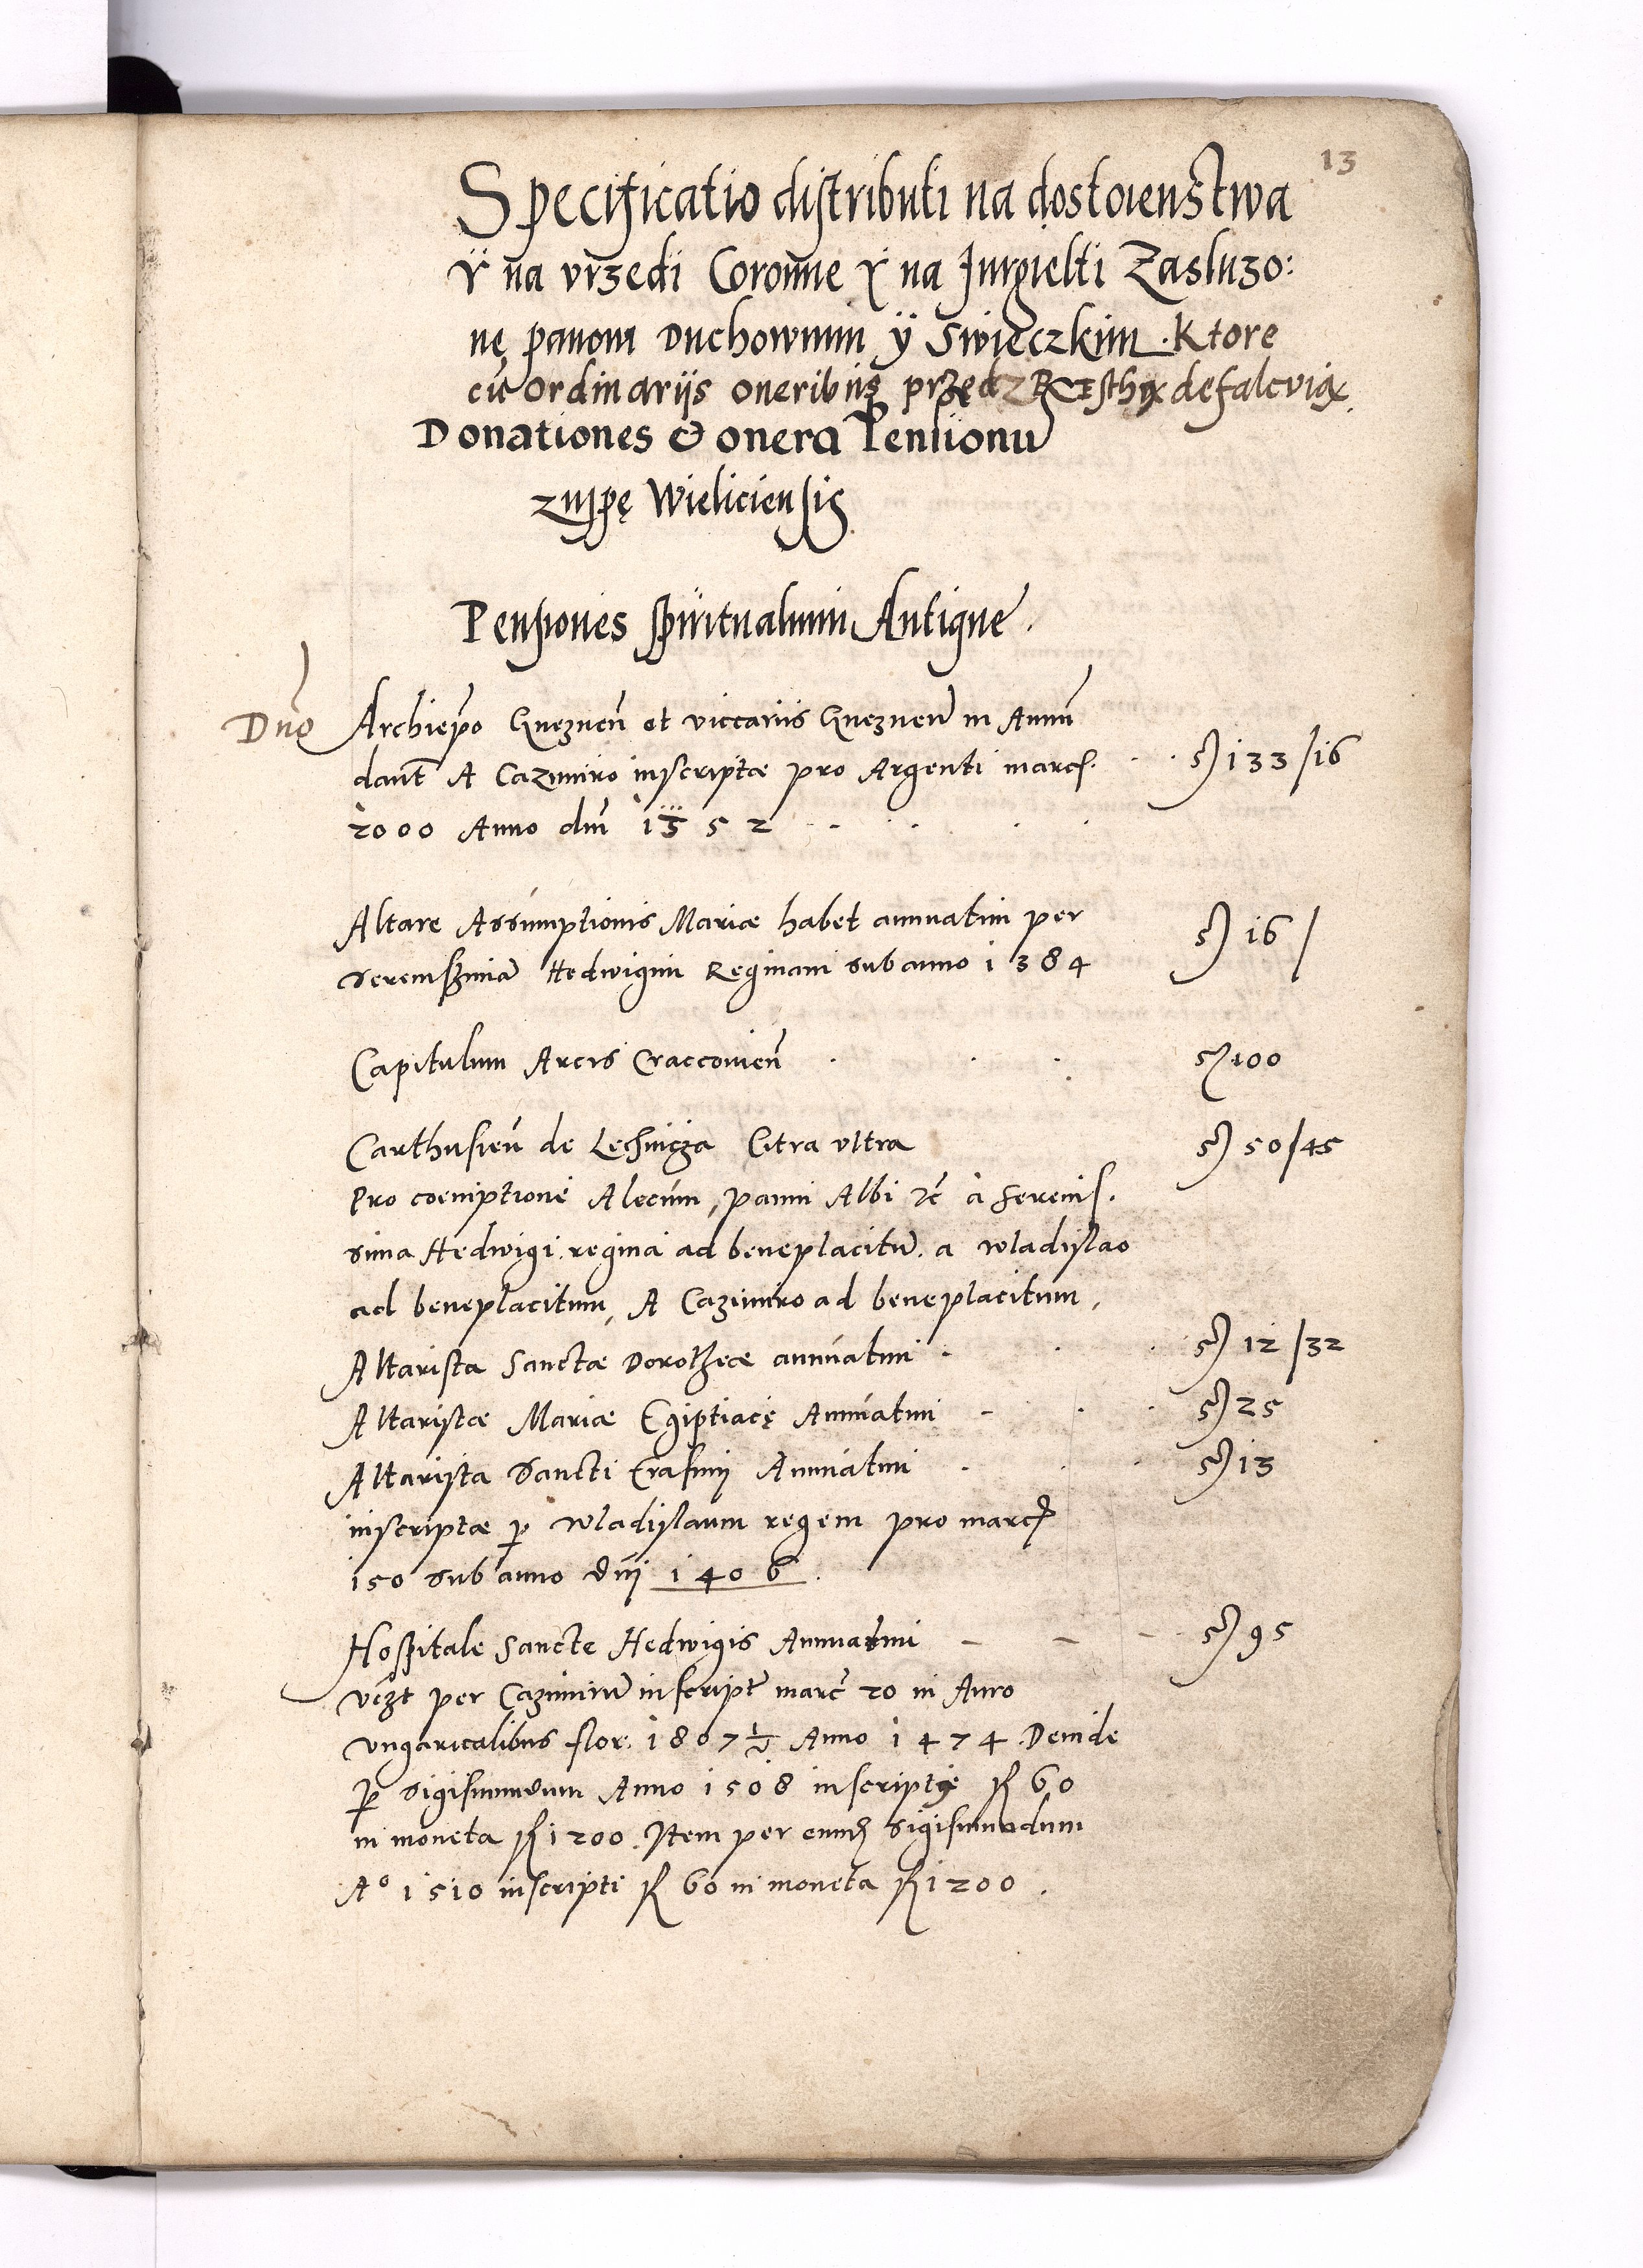 13
Specificatio distributi na dostoienstwa
Ÿ na vrzedi Coronne Ÿ na Jurgielti Zasluzo:
nę panom Duchownim ÿ Swieczkim. Ktore
cū ordinariis oneribus przed defalcuią.
Donationes & onera Pensionū
zuppę Wieliciensis
Pensiones spiritualium Antique.
Dnō Archiepō Gneznen̄ et viccariis Gneznen̄ in Annū
dant̄ A Cazimiro inscriptæ pro Argenti marcȩ. 133/16
2000 Anno dnī 1352
Altare Assumptionis Mariæ habet annuatim per 16/
Serenissimā Hedwigim Reginam sub anno 1384
Capitulum Arcis Cracconien̄ 100
Carthusien̄ de Lechnicza Citra vltra 50/45
Pro coemptione Alecum, panni Albi à serenis.
sima Hedwigi regina ad beneplacitū. a Wladislao
ad beneplacitum, A Cazimiro ad beneplacitum,
Altarista Sanctæ Dorotheæ annuatim 12/32
Altaristæ Mariæ Egiptiacę Annuatim 25
Altarista Sancti Erasmij Annuatim 13
inscriptæ p Wladislaum regem pro marcȩ
150 sub anno dnī 1406.
Hospitale Sancte Hedwigis Annuatim 95
vczt per Cazimirū inscript marc̄ 20 in Auro
vngaricalibus flor. 1807½ Anno 1474 Deinde
p Sigismundum Anno 1508 inscriptæ 60
in moneta 1200. Item per Sigismundum
A° 1510 inscripti 60 in moneta 1200.